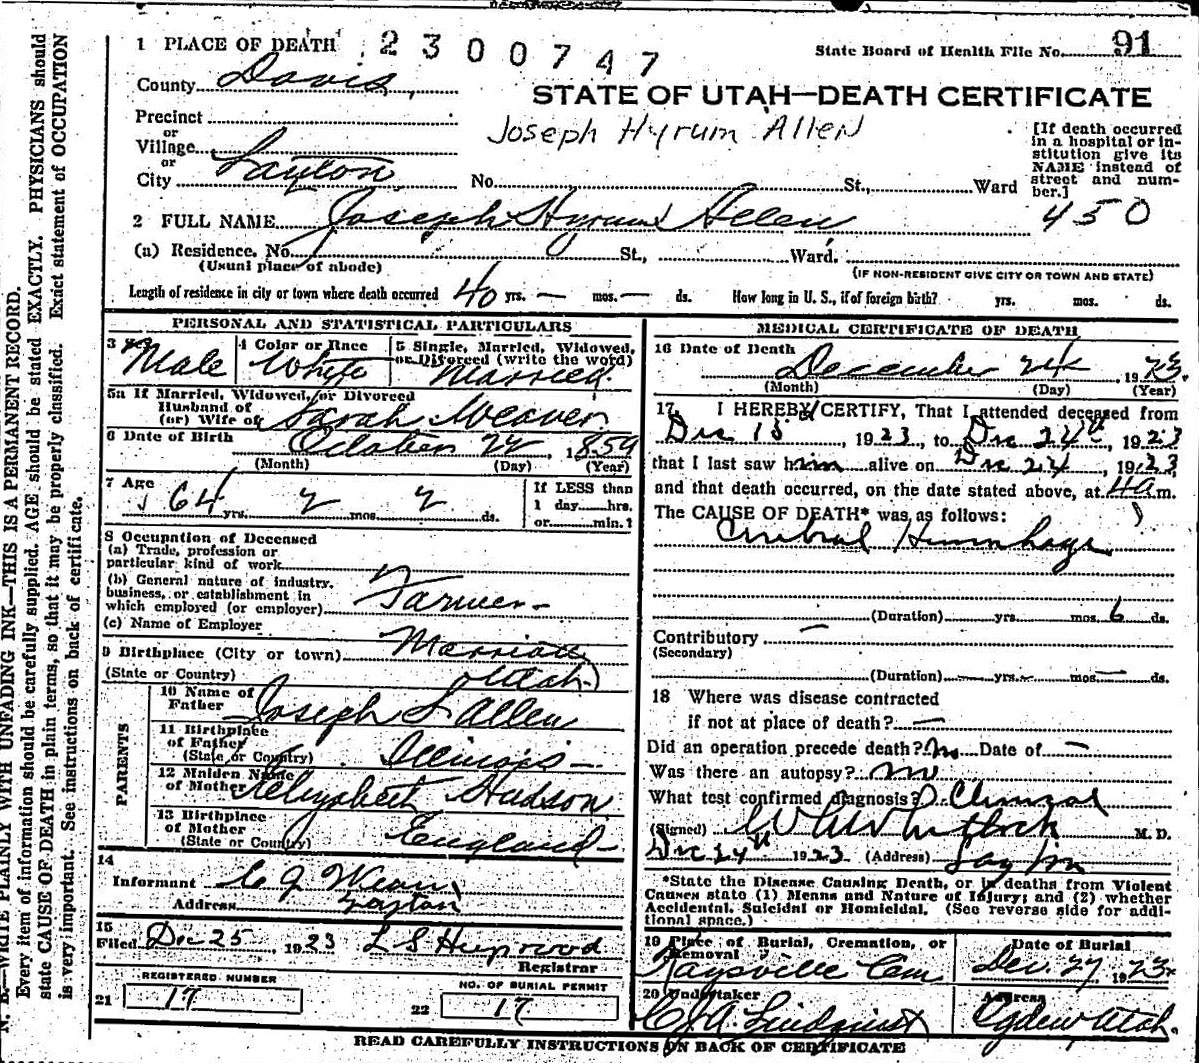 1 PLACE OF DEATH 2300747
State Board of Health File No. 91
County Davis
STATE OF UTAH—DEATH CERTIFICATE
Precinct
or
Village
or
City Layton No. St., Ward
Joseph Hyrum Allen
[If death occurred
in a hospital or in-
stitution give its
NAME instead of
street and num-
ber.]
450
2 FULL NAME Joseph Hyrum Allen
(a) Residence. No. St., Ward.
(Usual place of abode)
(IF NON-RESIDENT GIVE CITY OR TOWN AND STATE)
Length of residence in city or town where death occurred 40 yrs. — mos. — ds. How long in U. S., if of foreign birth? yrs. mos. ds.
PERSONAL AND STATISTICAL PARTICULARS
3 Male
4 Color or Race White
5 Single, Married, Widowed,
or Divorced (write the word)
Married
5a If Married, Widowed, or Divorced
Husband of
(or) Wife of Sarah Weaver
6 Date of Birth October 22 1859
(Month) (Day) (Year)
7 Age 64 yrs. 2 mos. 2 ds.
If LESS than
1 day hrs.
or min.?
8 Occupation of Deceased
(a) Trade, profession or
particular kind of work
(b) General nature of industry,
business, or establishment in
which employed (or employer) Farmer
(c) Name of Employer
9 Birthplace (City or town) Marriott
(State or Country) Utah
PARENTS
10 Name of
Father Joseph L Allen
11 Birthplace
of Father
(State or Country) Illinois
12 Maiden Name
of Mother Elizabeth Hudson
13 Birthplace
of Mother
(State or Country) England
14
Informant C J
Address Layton
15
Filed Dec 25 1923 L S Heywood
Registrar
REGISTERED NUMBER
21 17
NO. OF BURIAL PERMIT
22 17
MEDICAL CERTIFICATE OF DEATH
16 Date of Death
December 24 1923
(Month) (Day) (Year)
17 I HEREBY CERTIFY, That I attended deceased from
Dec 18, 1923, to Dec 24th, 1923
that I last saw him alive on Dec 24, 1923,
and that death occurred, on the date stated above, at 4 a m.
The CAUSE OF DEATH* was as follows:
Cerebral Hemorrhage
(Duration) yrs. mos. 6 ds.
Contributory —
(Secondary)
(Duration) — yrs. — mos. — ds.
18 Where was disease contracted
if not at place of death? —
Did an operation precede death? no Date of —
Was there an autopsy? no
What test confirmed diagnosis? Clinical
(Signed) Whitlock M. D.
Dec 24th 1923 (Address) Layton
*State the Disease Causing Death, or in deaths from Violent
Causes state (1) Means and Nature of Injury; and (2) whether
Accidental, Suicidal or Homicidal. (See reverse side for addi-
tional space.)
19 Place of Burial, Cremation, or
Removal
Kaysville Cem
Date of Burial
Dec. 27 1923
20 Undertaker
C. J. A. Lindquist
Address
Ogden, Utah.
READ CAREFULLY INSTRUCTIONS ON BACK OF CERTIFICATE
N. B.—WRITE PLAINLY WITH UNFADING INK—THIS IS A PERMANENT RECORD.
Every item of information should be carefully supplied. AGE should be stated EXACTLY. PHYSICIANS should
state CAUSE OF DEATH in plain terms, so that it may be properly classified. Exact statement of OCCUPATION
is very important. See instructions on back of certificate.